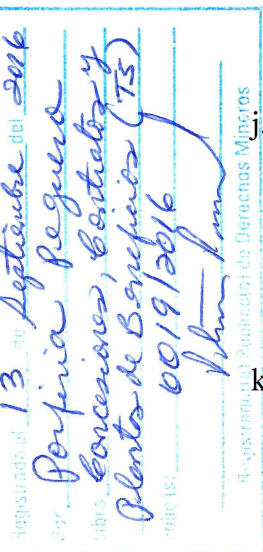 Registrado el 13 de Septiembre del 2016
Por Porfiria Peguero
Libro Concesiones, Contratos y
Plantas de Beneficios (T5)
Folio (s): 0019/2016
Registrador(a) Público(a) de Derechos Mineros
j.
k